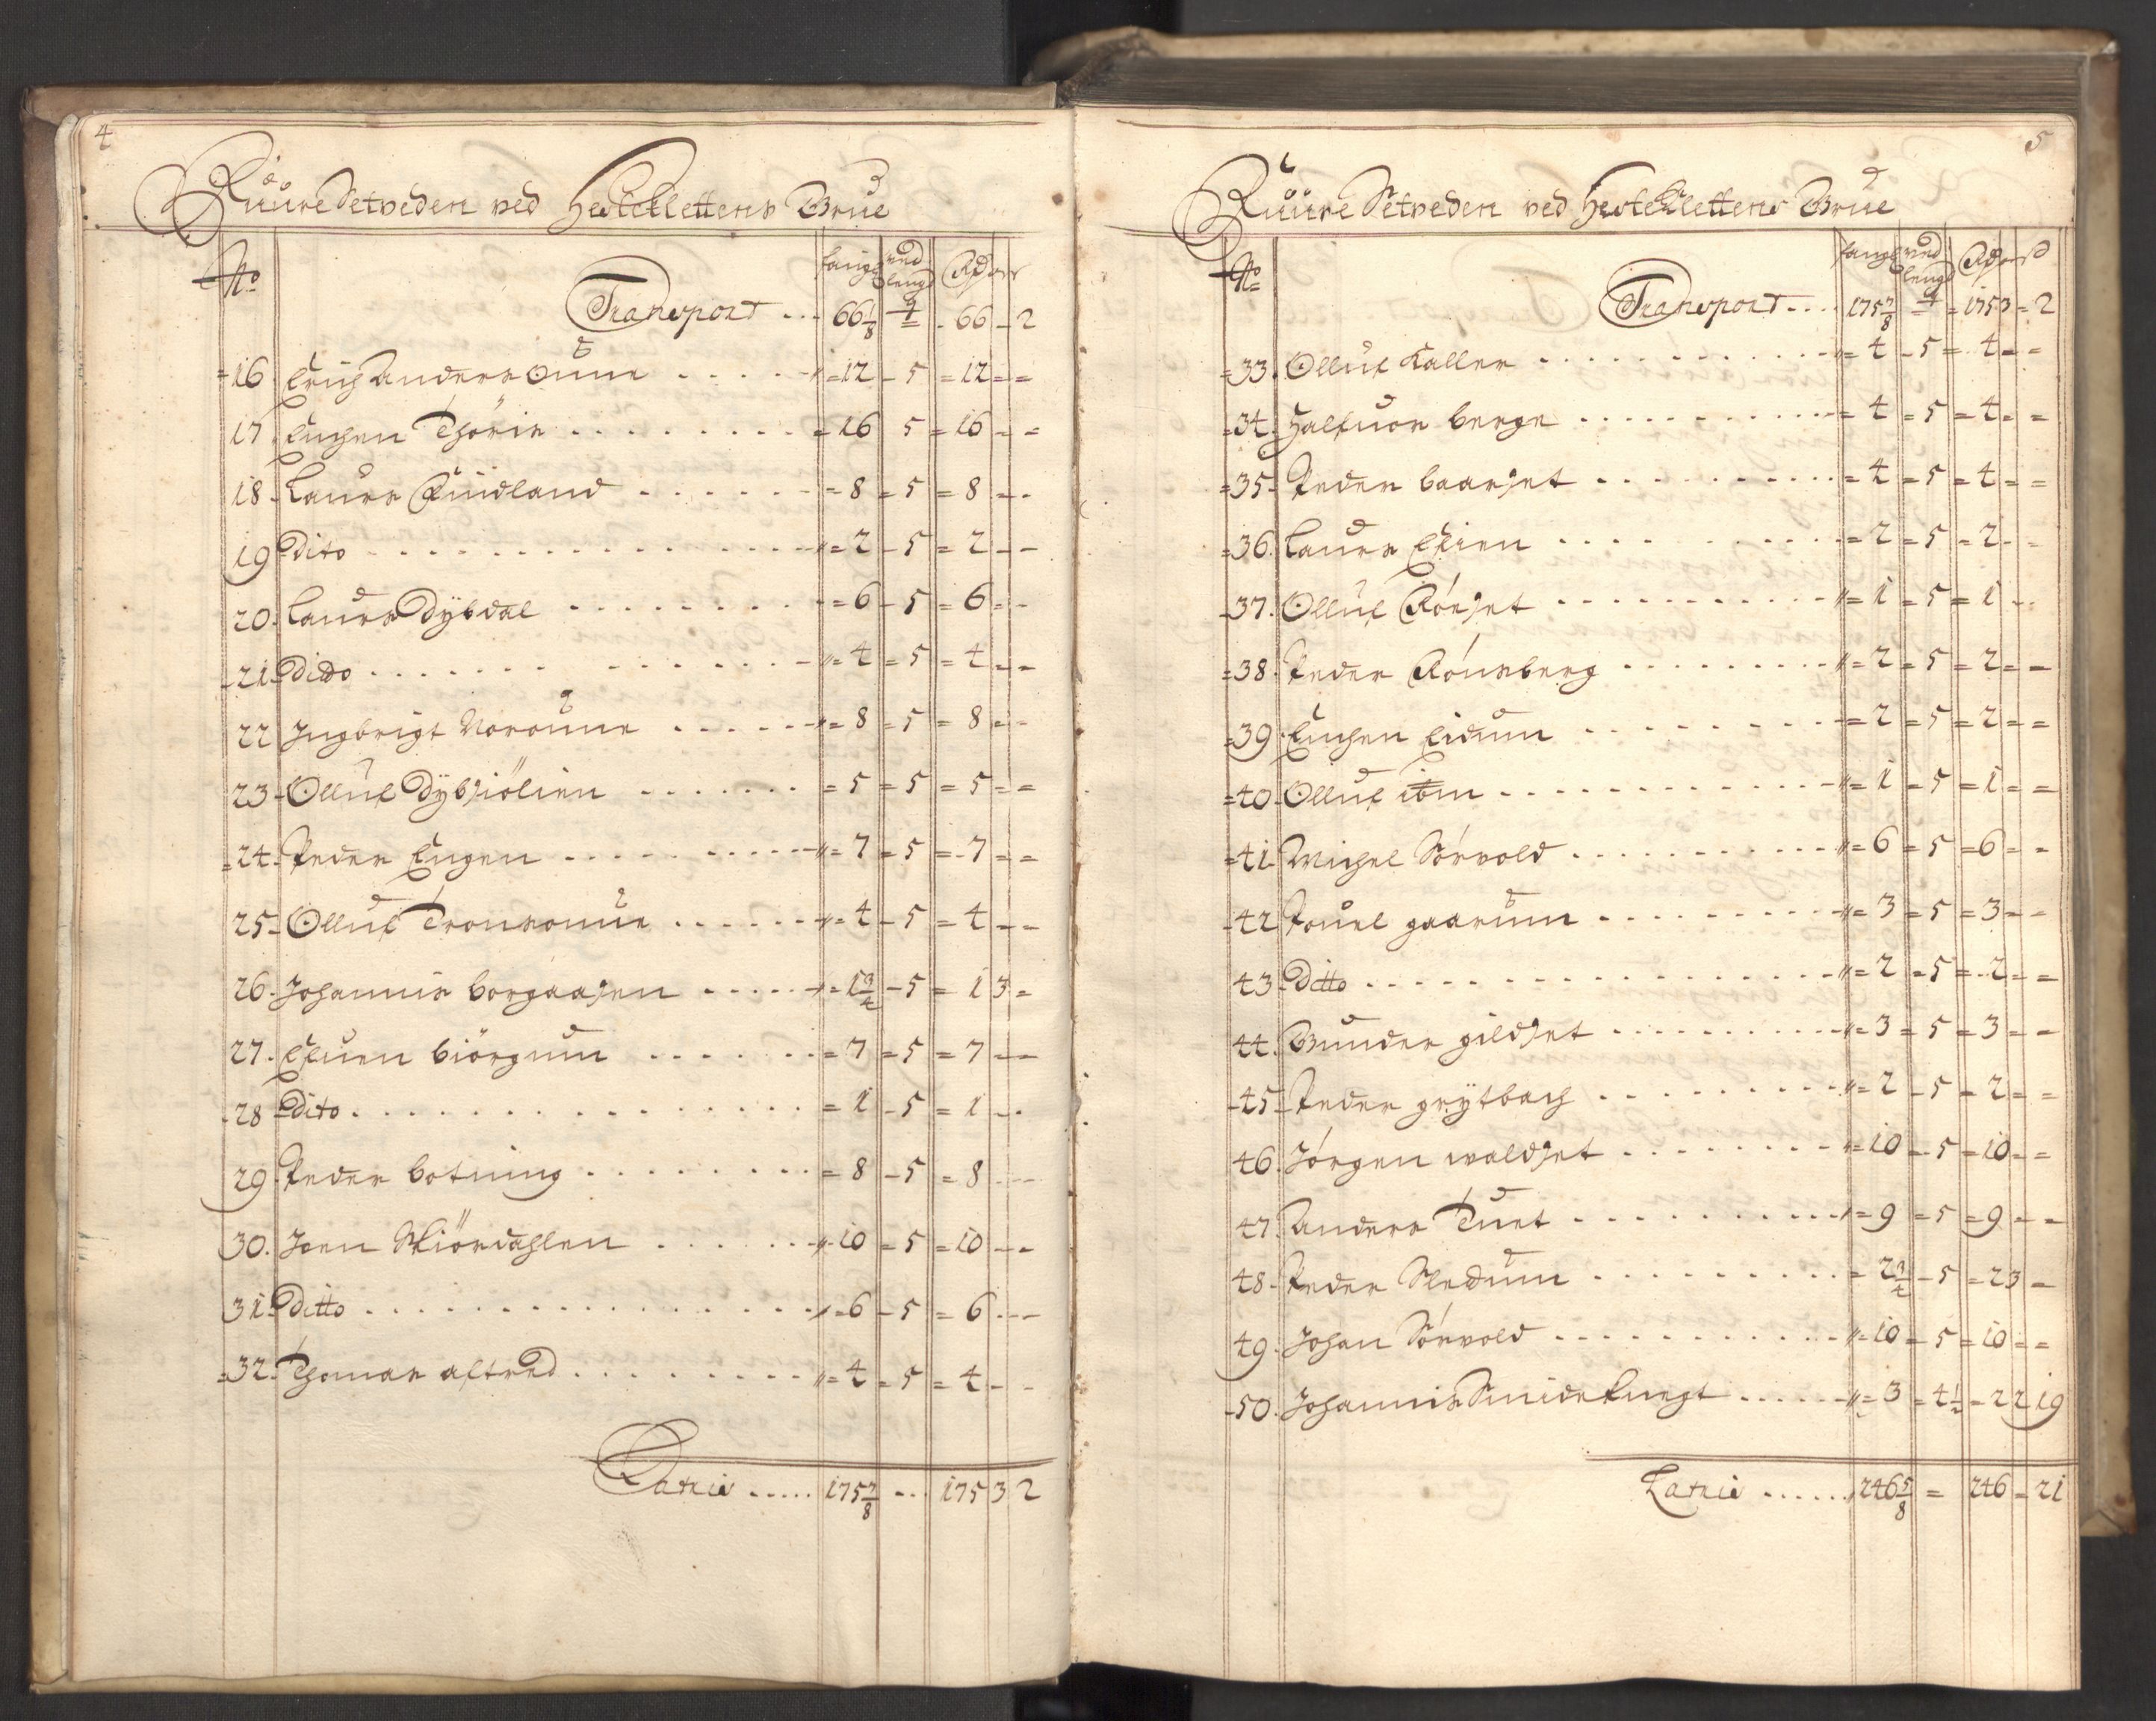 4
Ruure Setveden ved Hesteklettens Grue
No
fang ved lengd Rdr ort s
Transport ... 66 1/8 4 - 66 - 2
16 Erich Anders Oune ..... = 12 - 5 = 12 = =
17 Enchen Thöris ........ = 16 5 = 16 = =
18 Laurs Ruidland ...... = 8 = 5 = 8 = -
19 Dito ........ = 2 - 5 = 2 - -
20. Laurs Dybdal ........ = 6 - 5 = 6 = -
21 Dido ........ = 4 = 5 = 4 = -
22 Ingbrigt Noroune ..... = 8 = 5 = 8 = -
23 Olluf Dybsiölien ....... = 5 = 5 = 5 = =
24. Peder Engen .......... = 7 = 5 = 7 = =
25 Olluf Tronsoune ...... = 4 - 5 = 4 - -
26. Johannis borgaasen ..... = 1 3/4 - 5 = 1 3 =
27. Efuen biörgum ...... = 7 = 5 = 7 = -
28 Dito ........ = 1 - 5 = 1 - -
29 Peder botning ........ = 8 - 5 = 8 - -
30. Joen Skiördahlen ...... 10 = 5 = 10 - -
31 Ditto ........ = 6 - 5 = 6 - -
32. Thomas aftred ........ = 4 = 5 = 4 - -
Latris ..... 175 7/8 ... 175 3 2
5
Ruure Setveden ved Hesteklettens Grue
No
fang ved lengd Rdr ort s
Transport ... 175 7/8 4 = 175 3 = 2
33. Olluf Kaller ........ = 4 - 5 = 4 = =
34. Halfuor berge ........ = 4 = 5 = 4 = =
35. Peder baarset ........ = 4 = 5 = 4 = =
36. Laurs Efien ........ = 2 = 5 = 2 - -
37. Olluf Rönset ........ = 1 = 5 = 1 - -
38. Peder Rönsberg ........ = 2 = 5 = 2 = -
39. Enchen Eidum ........ = 2 = 5 = 2 = =
40. Olluf itm ........ = 1 = 5 = 1 = =
41 Michel Sörvold ........ = 6 = 5 = 6 = -
42 Pouel gaarum ........ = 3 = 5 = 3 = -
43 Ditto ........ = 2 = 5 = 2 = =
44. Gunder gildset ........ = 3 = 5 = 3 = =
45 Peder grytbach ........ = 2 - 5 = 2 = =
46. Jörgen waldset ........ = 10 = 5 = 10 = =
47. Anders Tuet ........ = 9 = 5 = 9 = =
48. Peder Sledum ........ = 2 3/4 - 5 = 2 3 =
49. Johan Sörvold ........ = 10 = 5 = 10 = =
50. Johannis Smideknegt ...... = 3 = 4 1/2 = 2 2 19
Latris ...... 246 5/8 = 246 = 21